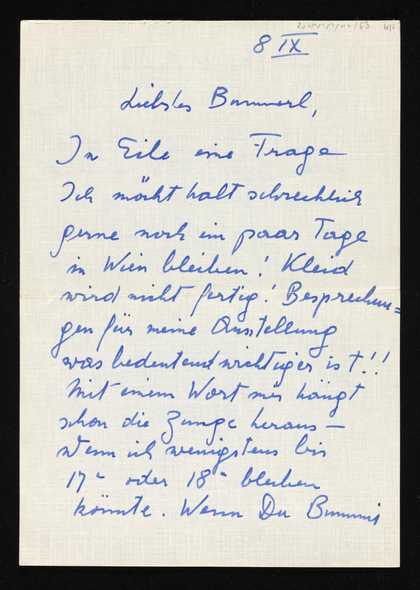 8 IX
Liebstes Bummerl,
In Eile eine Frage
Ich möcht halt schrecklich
gerne noch ein paar Tage
in Wien bleiben! Kleid
wird nicht fertig! Besprechun=
gen für meine Ausstellung
was bedeutend wichtiger ist!!
Mit einem Wort mir hängt
schon die Zunge heraus —
wenn ich wenigstens bis
17ⁿ oder 18ⁿ bleiben
könnte. Wenn Du Bummis